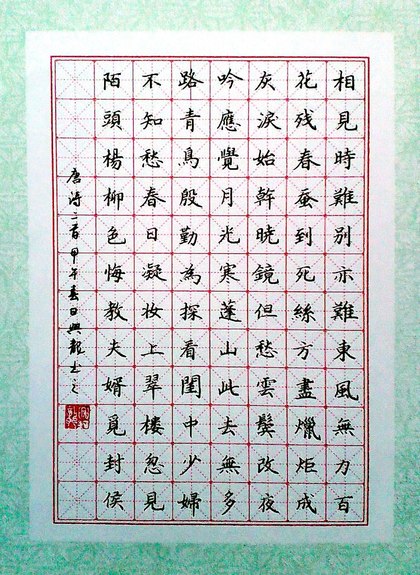 相見時難別亦難東風無力百
花残春蚕到死絲方盡爉炬成
灰淚始幹曉鏡但愁雲鬓改夜
吟應覺月光寒蓬山此去無多
路青鳥殷勤為探看閨中少婦
不知愁春日凝妝上翠楼忽見
陌頭楊柳色悔教夫婿覓封侯
唐詩二首甲午春日興龍书之